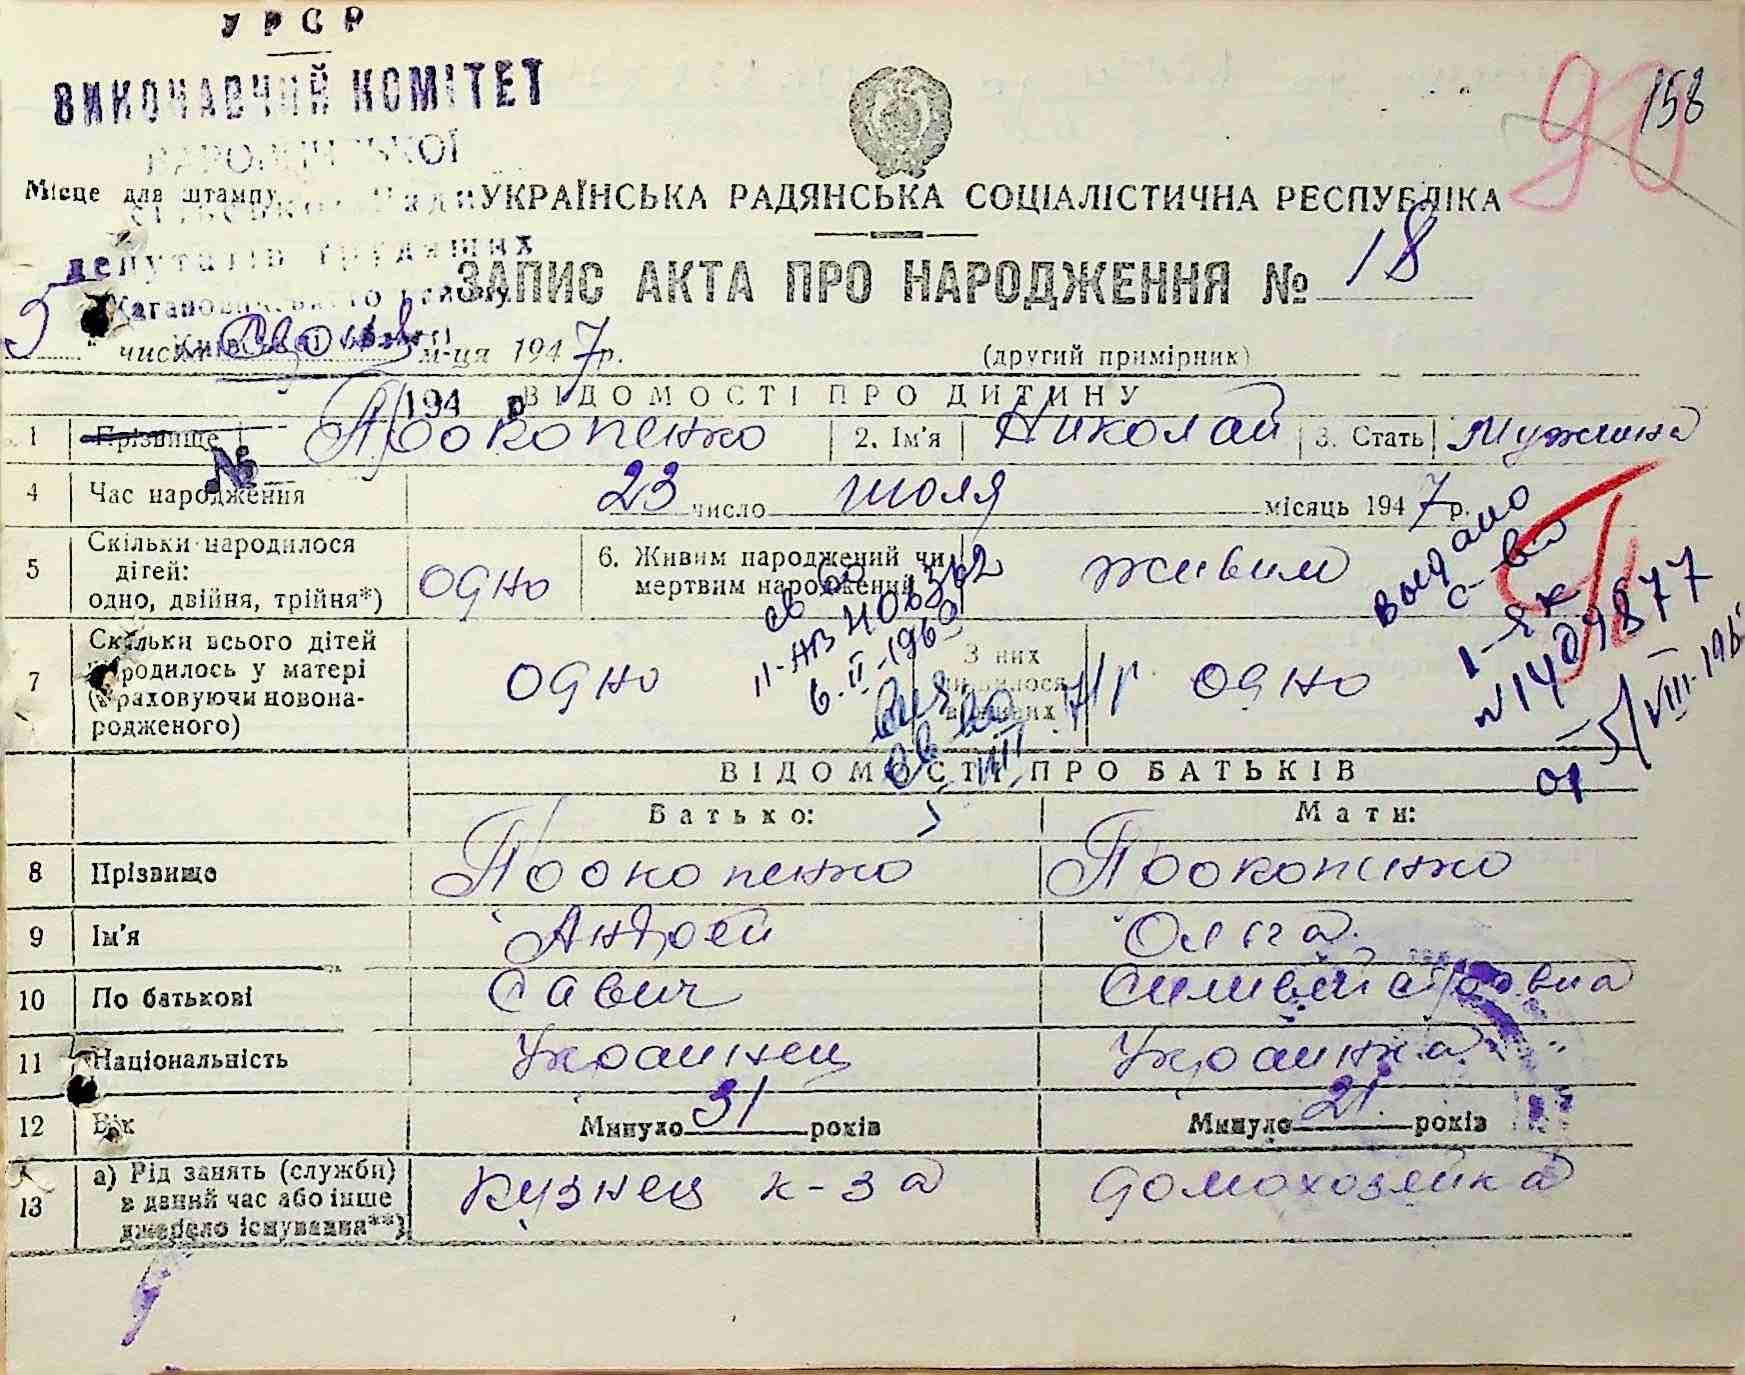 УРСР
ВИКОНАВЧИЙ КОМІТЕТ
158
90
Місце для штампу
УКРАЇНСЬКА РАДЯНСЬКА СОЦІАЛІСТИЧНА РЕСПУБЛІКА
депутатів трудящих
ЗАПИС АКТА ПРО НАРОДЖЕННЯ № 18
5 " числа м-ця 1947 р. (другий примірник)
194 р.
ВІДОМОСТІ ПРО ДИТИНУ
1 Прізвище Прокопенко 2. Ім'я Николай 3. Стать Мужчина
№
4 Час народження 23 число июля місяць 1947 р.
5 Скільки народилося дітей: одно, двійня, трійня*) одно 6. Живим народжений чи мертвим народжений живим
Выдано
с-во
I-ЯК
№ 1409877
от 5/VIII-196
св во
II-АЗ
6.II-1960
7 Скільки всього дітей народилось у матері (враховуючи новонародженого) одно З них одно
ВІДОМОСТІ ПРО БАТЬКІВ
Батько: Мати:
8 Прізвище Прокопенко Прокопенко
9 Ім'я Андрей Ольга
10 По батькові Савич Силивёйстровна
11 Національність Украинец Украинка
12 Вік Минуло 31 років Минуло 21 років
13 а) Рід занять (служби) в даний час або інше джерело існування**) Кузнец к-за домохозяйка